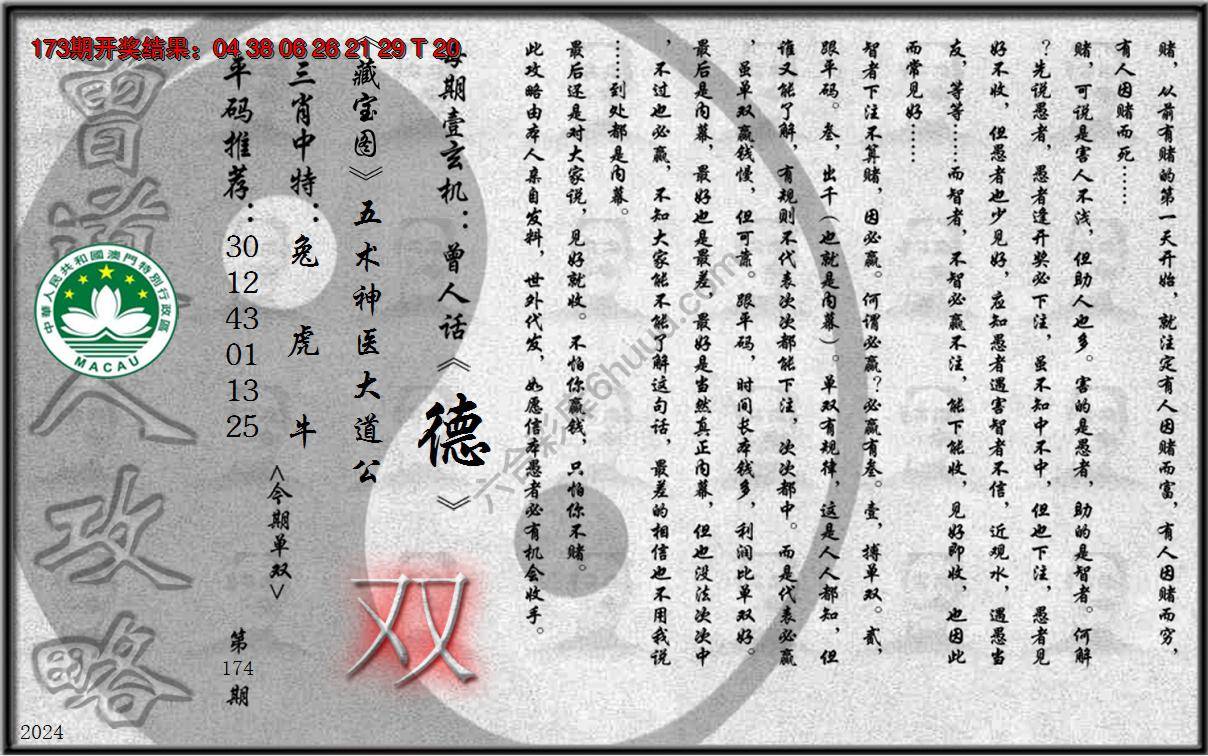 173期开奖结果：04 38 06 26 21 29 T 20
赌，从前有赌的第一天开始，就注定有人因赌而富，有人因赌而穷，
有人因赌而死……
赌，可说是害人不浅，但助人也多。害的是愚者，助的是智者。何解
？先说愚者，愚者逢开奖必下注，虽不知中不中，但也下注，愚者见
好不收，但愚者也少见好，应知愚者遇害智者不信，近观水，遇愚当
友，等等……而智者，不智必赢不注，能下能收，见好即收，也因此
而常见好……
智者下注不算赌，因必赢。何谓必赢？必赢有叁。壹，搏单双。贰，
跟平码。叁，出千（也就是内幕）。单双有规律，这是人人都知，但
谁又能了解，有规则不代表次次都能下注，次次都中。而是代表必赢
，虽单双赢钱慢，但可靠。跟平码，时间长本钱多，利润比单双好。
最后是内幕，最好也是最差，最好是当然真正内幕，但也没法次次中
，不过也必赢，不知大家能不能了解这句话，最差的相信也不用我说
……到处都是内幕。
最后还是对大家说，见好就收。不怕你赢钱，只怕你不赌。
此攻略由本人亲自发料，世外代发，如愿信本愚者必有机会收手。
每期壹玄机：曾人话《德》
《藏宝图》五术神医大道公
三肖中特：兔 虎 牛
平码推荐：30 12 43 01 13 25
<今期单双>
双
第174期
曾道人攻略
中華人民共和國澳門特別行政區
MACAU
六合彩库6huuu.com
2024